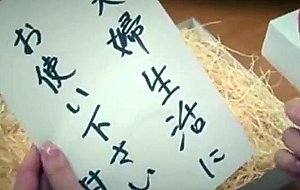 夫婦生活に
お使い下さい